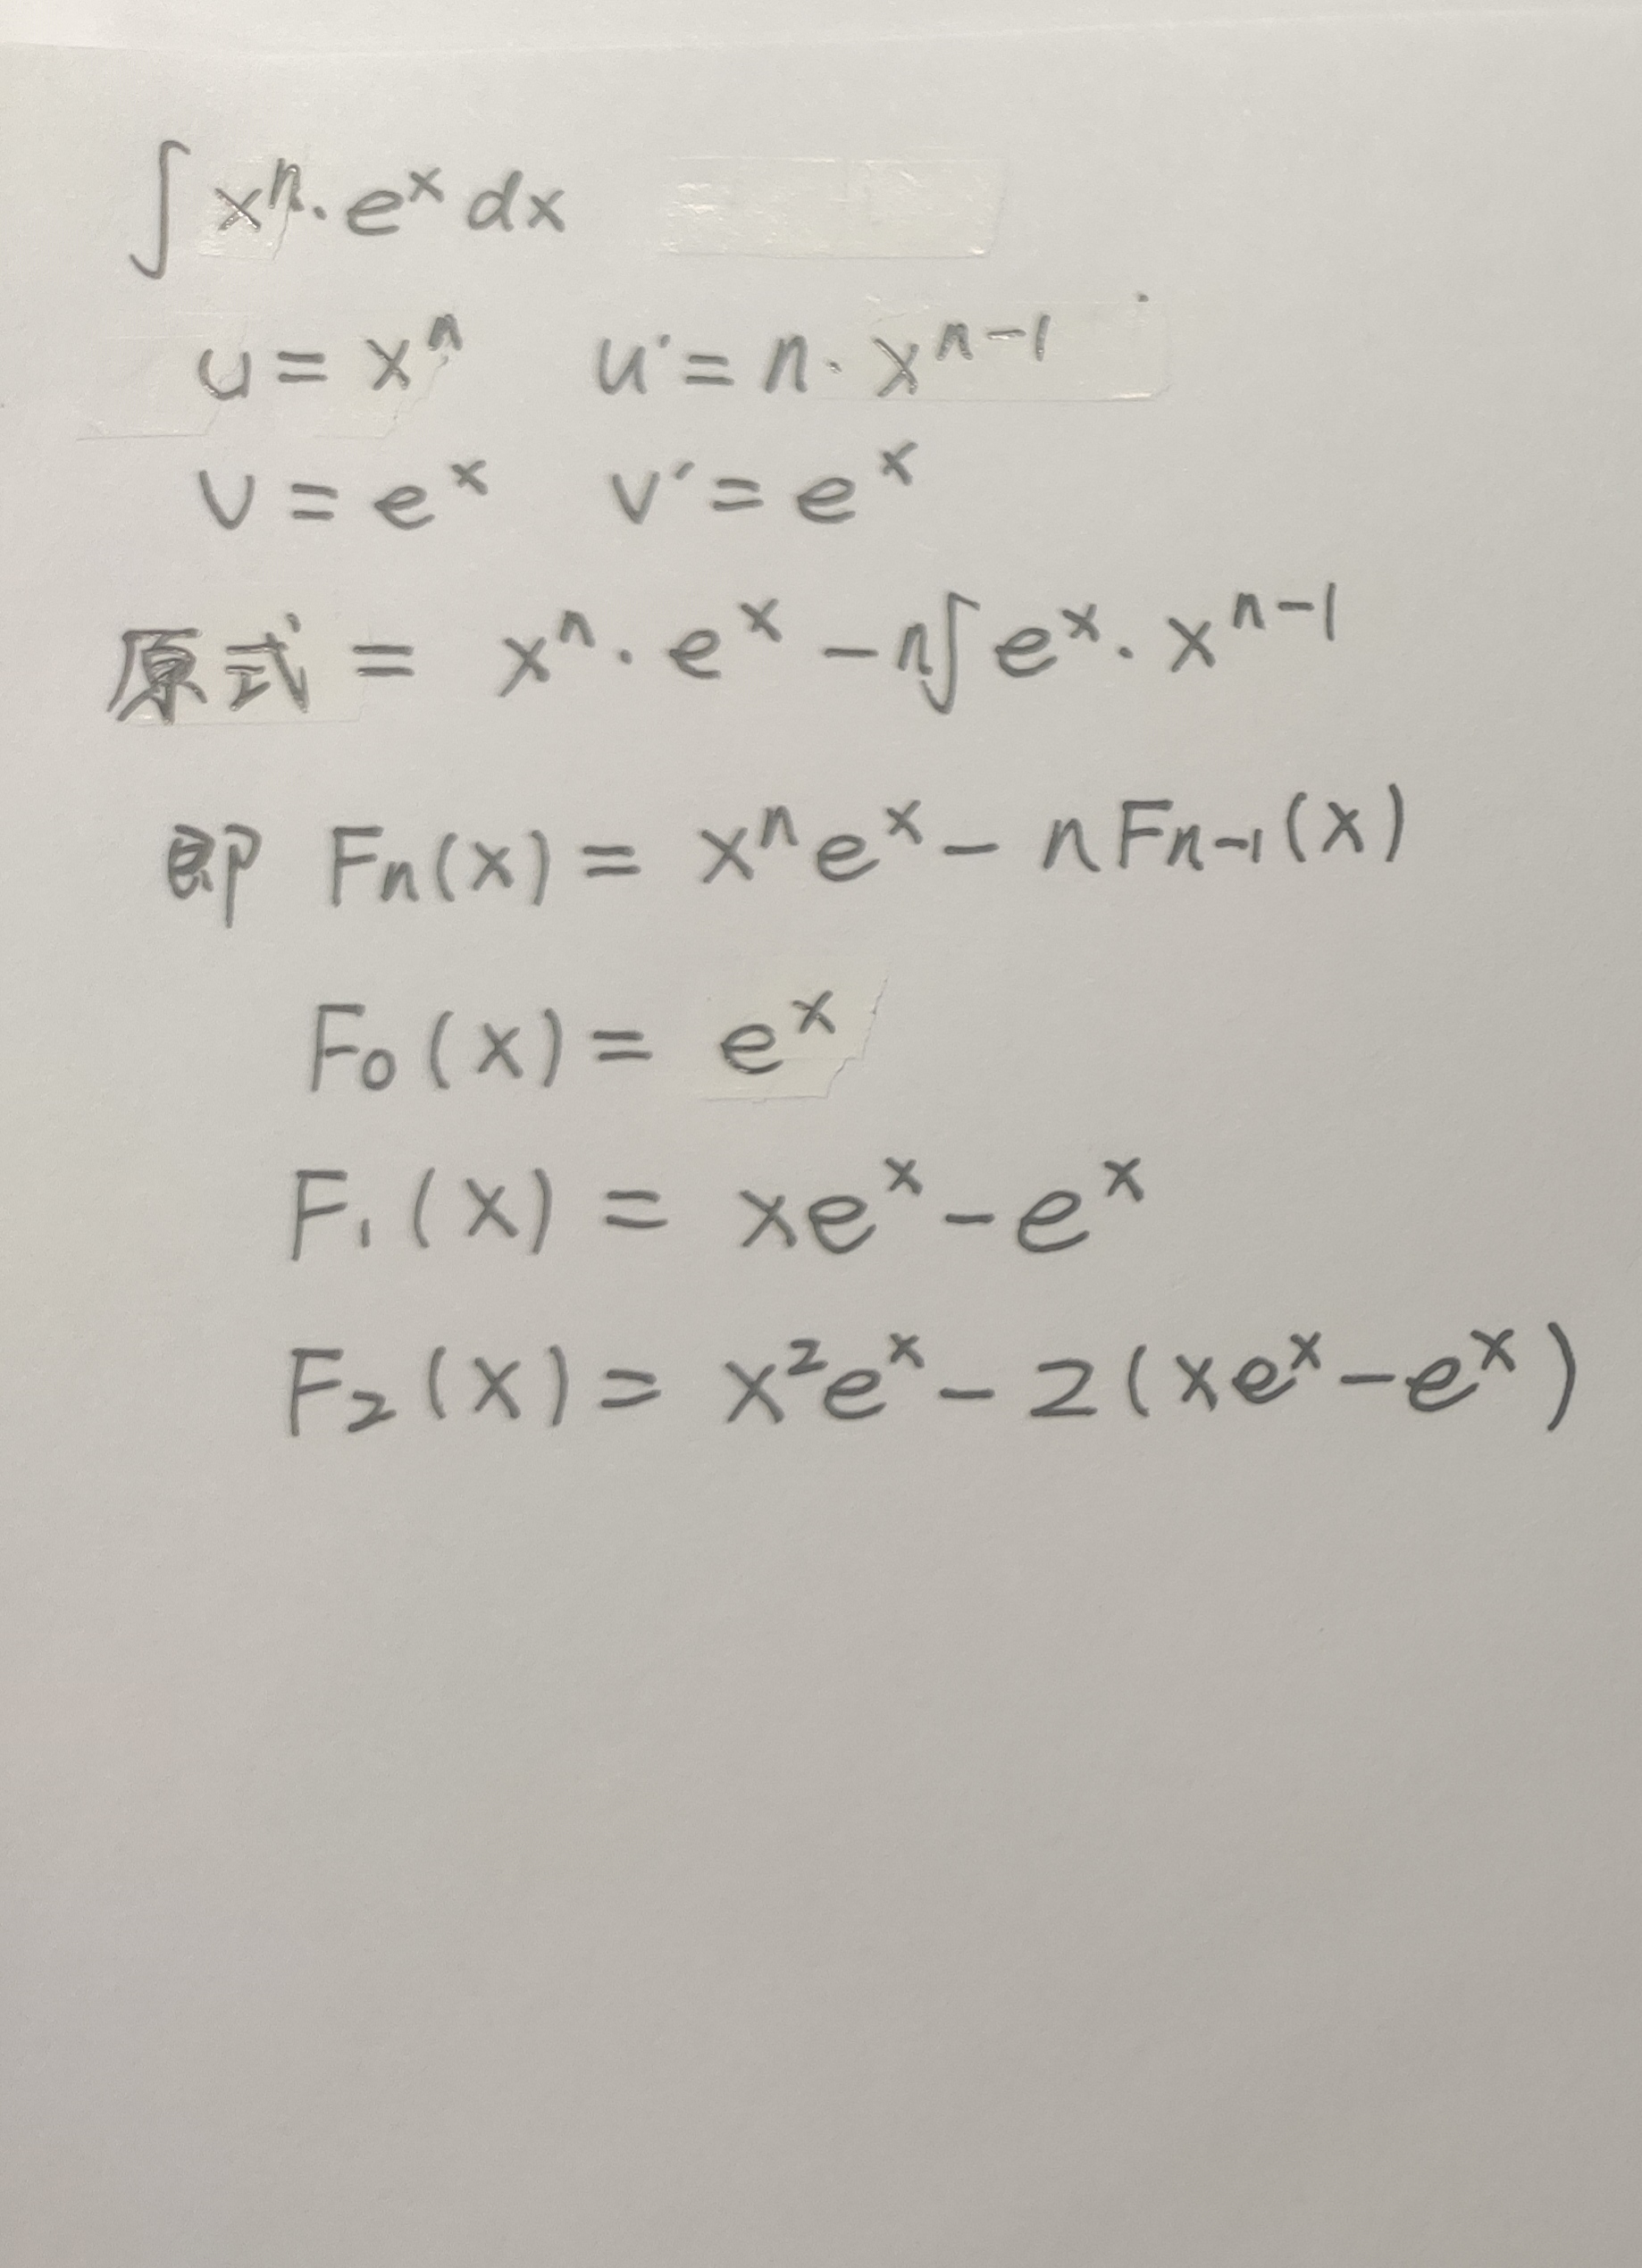 ∫ xⁿ · eˣ dx
u = xⁿ u' = n · xⁿ⁻¹
v = eˣ v' = eˣ
原式 = xⁿ · eˣ − n∫ eˣ · xⁿ⁻¹
即 Fₙ(x) = xⁿeˣ − nFₙ₋₁(x)
F₀(x) = eˣ
F₁(x) = xeˣ − eˣ
F₂(x) = x²eˣ − 2(xeˣ − eˣ)